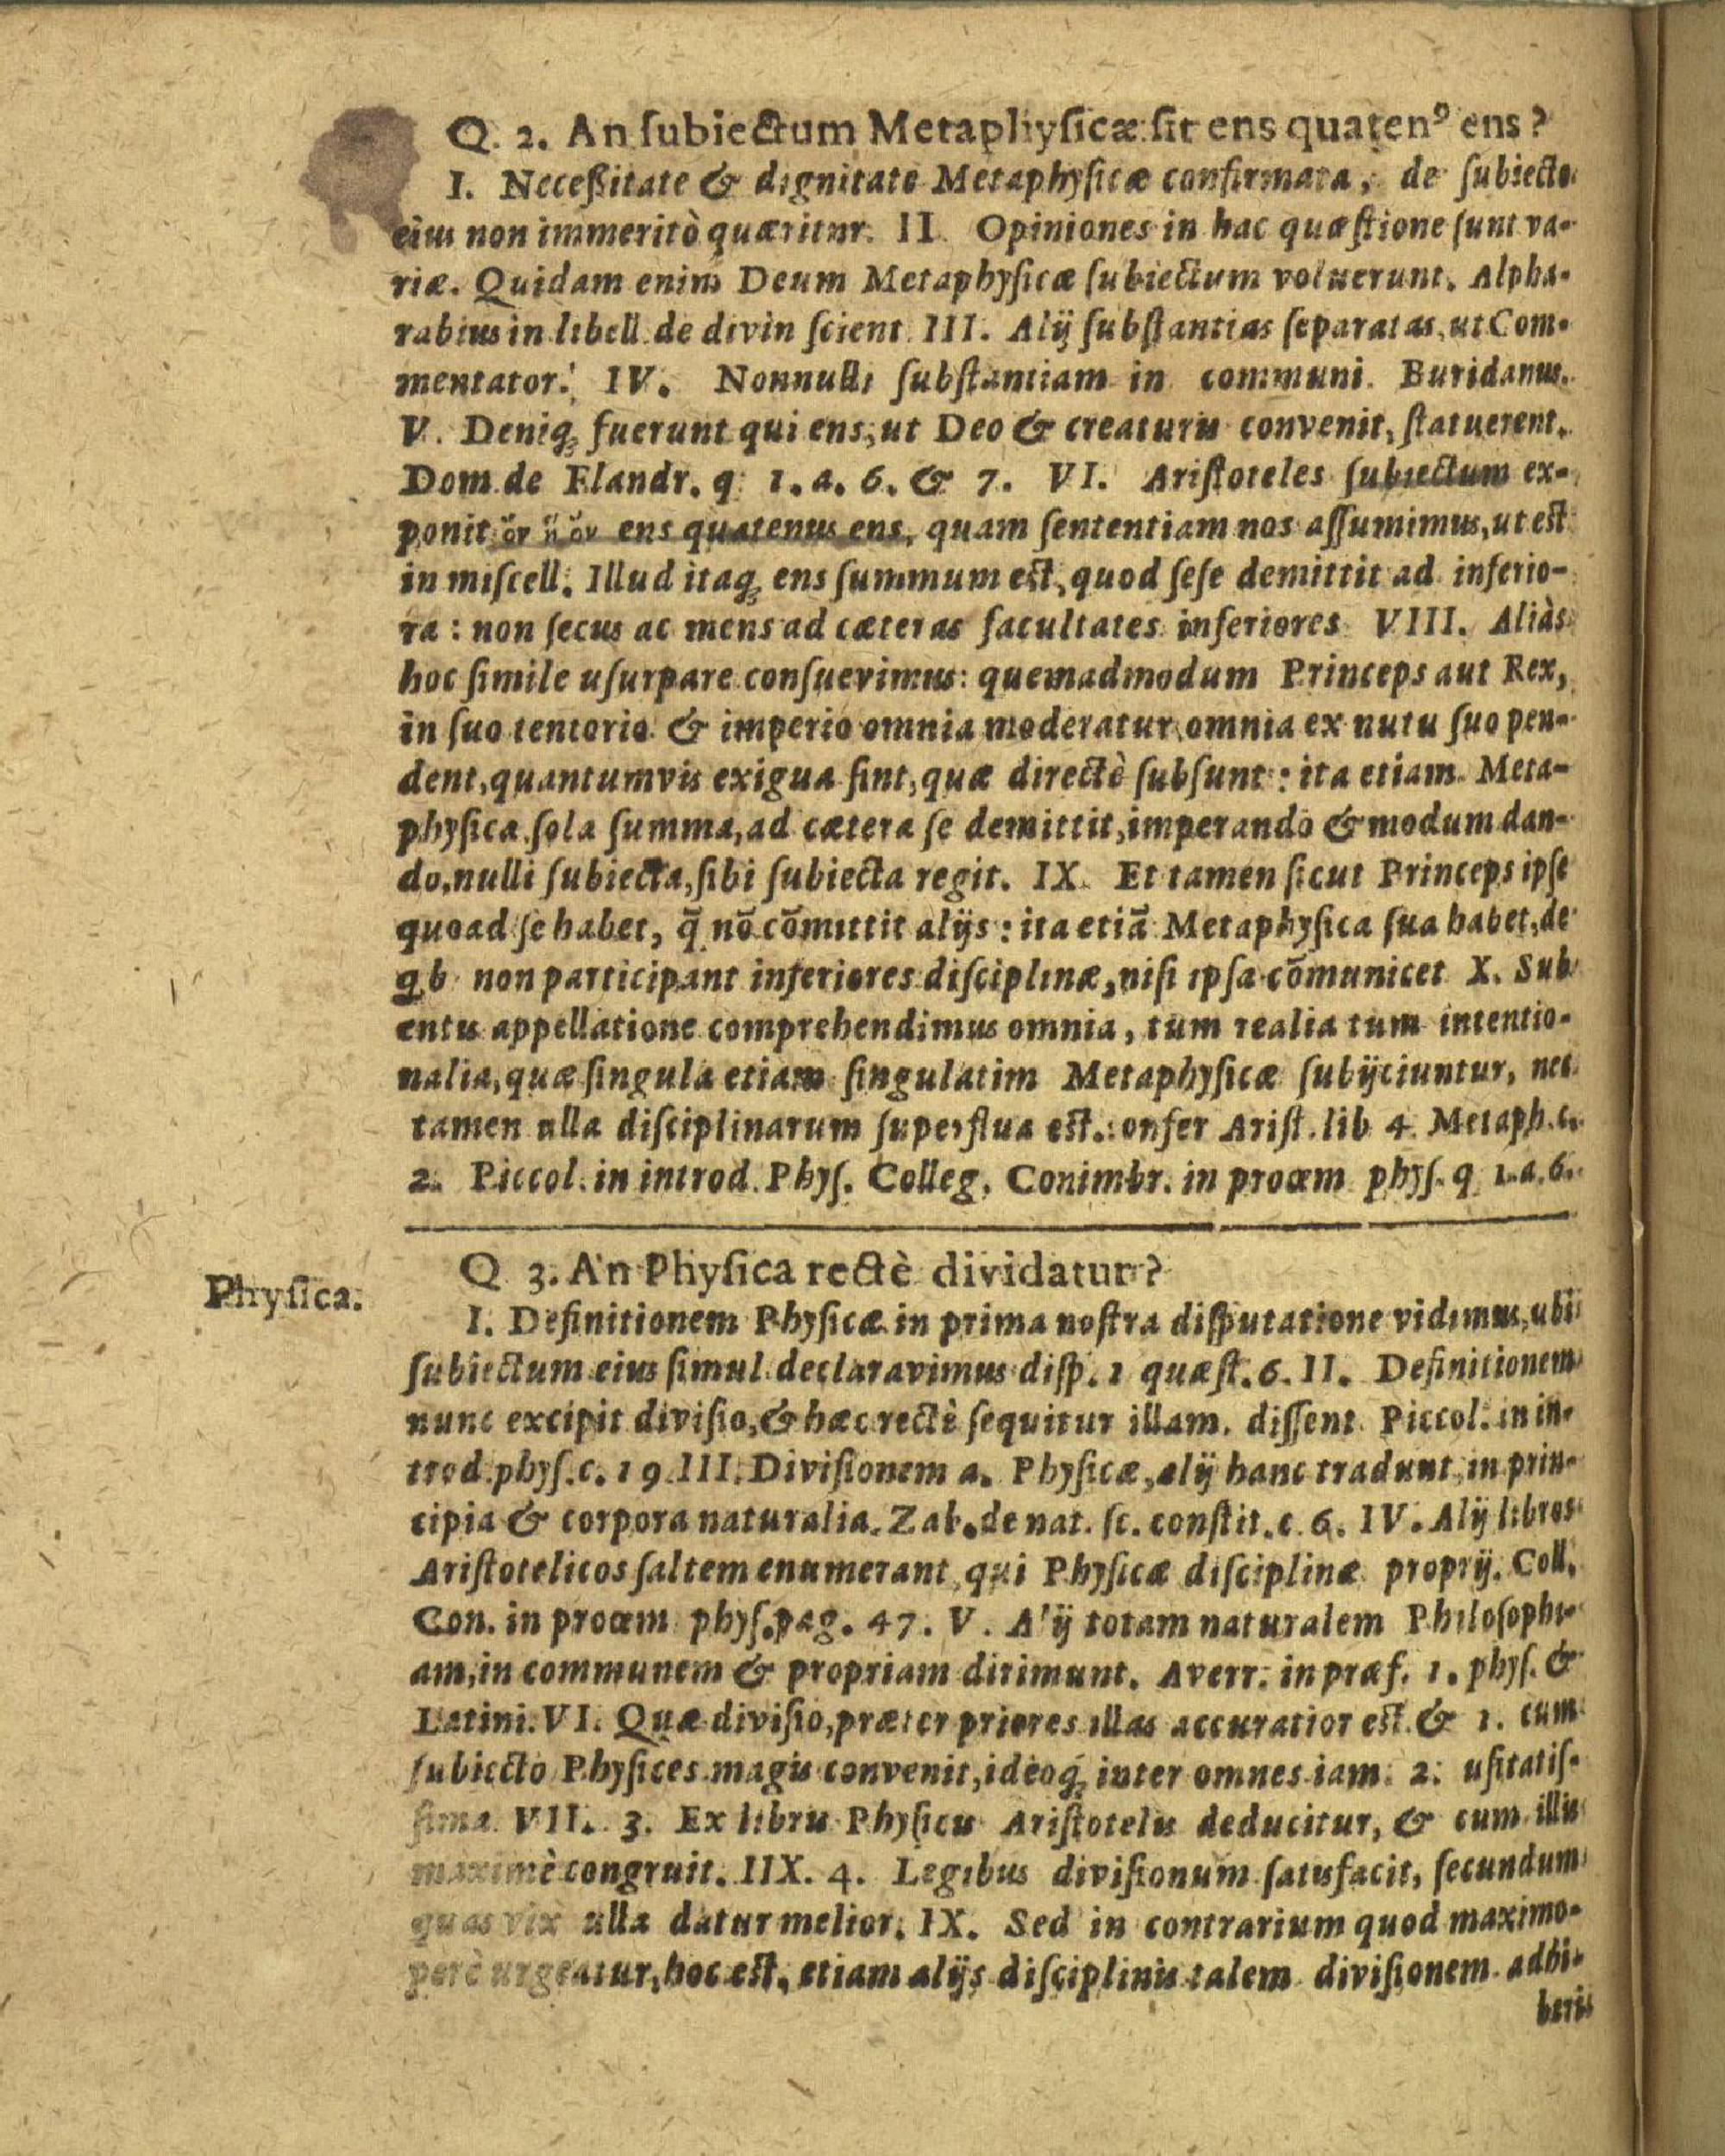 Q. 2. An ſubiectum Metaphyſicæ ſit ens quatenꝰ ens?
I. Neceßitate & dignitate Metaphyſicæ confirmata, de ſubiecto
eius non immeritò quæritur. II. Opiniones in hac quæſtione ſunt va-
riæ. Quidam enim Deum Metaphyſicæ ſubiectum voluerunt. Alpha-
rabius in libell. de divin ſcient. III. Alij ſubſtantias ſeparatas, ut Com-
mentator. IV. Nonnulli ſubſtantiam in communi. Buridanus.
V. Deniq; fuerunt qui ens, ut Deo & creaturis convenit, ſtatuerent.
Dom. de Flandr. q. 1. a. 6. & 7. VI. Ariſtoteles ſubiectum ex-
ponit ὂν ᾗ ὂν ens quatenus ens, quam ſententiam nos aſſumimus, ut eſt
in miſcell. Illud itaq; ens ſummum eſt, quod ſeſe demittit ad inferio-
ra: non ſecus ac mens ad cæteras facultates inferiores VIII. Aliàs
hoc ſimile uſurpare conſuevimus: quemadmodum Princeps aut Rex,
in ſuo tentorio & imperio omnia moderatur, omnia ex nutu ſuo pen-
dent, quantumvis exigua ſint, quæ directè ſubſunt: ita etiam Meta-
phyſica ſola ſumma, ad cætera ſe demittit, imperando & modum dan-
do, nulli ſubiecta, ſibi ſubiecta regit. IX. Et tamen ſicut Princeps ipſe
quoad ſe habet, q̃ nõ cõmittit alijs: ita etiã Metaphyſica ſua habet, de
qb non participant inferiores diſciplinæ, niſi ipſa cõmunicet X. Sub
entis appellatione comprehendimus omnia, tum realia tum intentio-
nalia, quæ ſingula etiam ſingulatim Metaphyſicæ ſubijciuntur, nec
tamen ulla diſciplinarum ſuperflua eſt. confer Ariſt. lib 4. Metaph. c.
2. Piccol. in introd. Phyſ. Colleg. Conimbr. in proœm phyſ. q 1. a. 6.
Q 3. An Phyſica rectè dividatur?
Phyſica.
I. Definitionem Phyſicæ in prima noſtra diſputatione vidimus, ubi
ſubiectum eius ſimul declaravimus diſp. 1 quæſt. 6. II. Definitionem
nunc excipit diviſio, & hæc rectè ſequitur illam. diſſent Piccol. in in-
trod. phyſ. c. 19. III. Diviſionem a. Phyſicæ, alij hanc tradunt, in prin-
cipia & corpora naturalia. Zab. de nat. ſc. conſtit. c. 6. IV. Alij libros
Ariſtotelicos ſaltem enumerant, qui Phyſicæ diſciplinæ proprij. Coll.
Con. in proœm phyſ. pag. 47. V. Alij totam naturalem Philoſophi-
am, in communem & propriam dirimunt. Averr. in præf. 1. phyſ. &
Latini. VI. Quæ diviſio, præter priores illas accuratior eſt. & 1. cum
ſubiecto Phyſices magis convenit, ideoq́; inter omnes iam. 2. uſitatiſ-
ſima VII. 3. Ex libris Phyſicis Ariſtotelis deducitur, & cum illis
maximè congruit. IIX. 4. Legibus diviſionum ſatisfacit, ſecundum
quas vix ulla datur melior. IX. Sed in contrarium quod maximo-
perè urgeatur, hoc eſt, etiam alijs diſciplinis talem diviſionem adhi-
beris